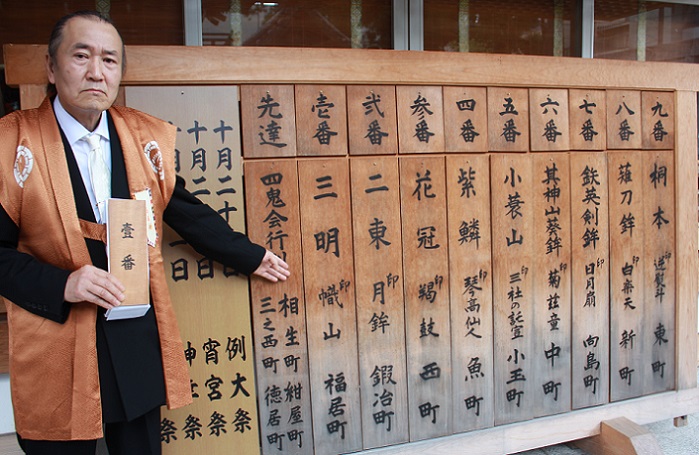 九番 桐本 逆熨斗 東町
八番 薙刀鉾 印 白楽天 新町
七番 鉄英剣鉾 印 日月扇 向島町
六番 其神山葵鉾 印 菊慈童 中町
五番 小蓑山 印 三社の託宣 小玉町
四番 紫鱗 印 琴高仙人 魚町
参番 花冠 印 鞨鼓 西町
弐番 二東 印 月鉾 鍛冶町
壱番 三明 印 幟山 福居町
先達 四鬼会行列 相生町 紺屋町 三之西町 徳居町
例大祭
宵宮祭
壹番